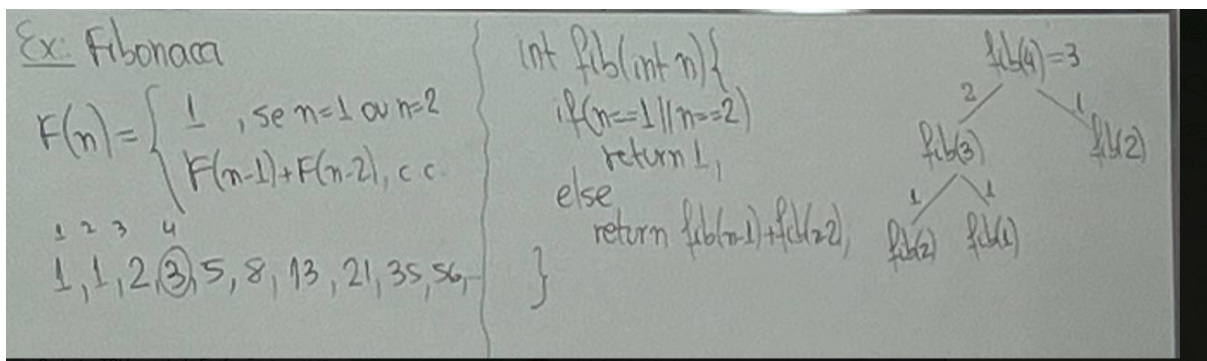 Ex: Fibonacci
F(n) = { 1 , se n=1 ou n=2
F(n-1)+F(n-2), c c.
1 2 3 4
1, 1, 2, 3, 5, 8, 13, 21, 35, 56,
int fib(int n){
if(n==1 || n==2)
return 1;
else
return fib(n-1)+fib(n-2);
}
fib(4)=3
2 1
fib(3) fib(2)
1 1
fib(2) fib(1)